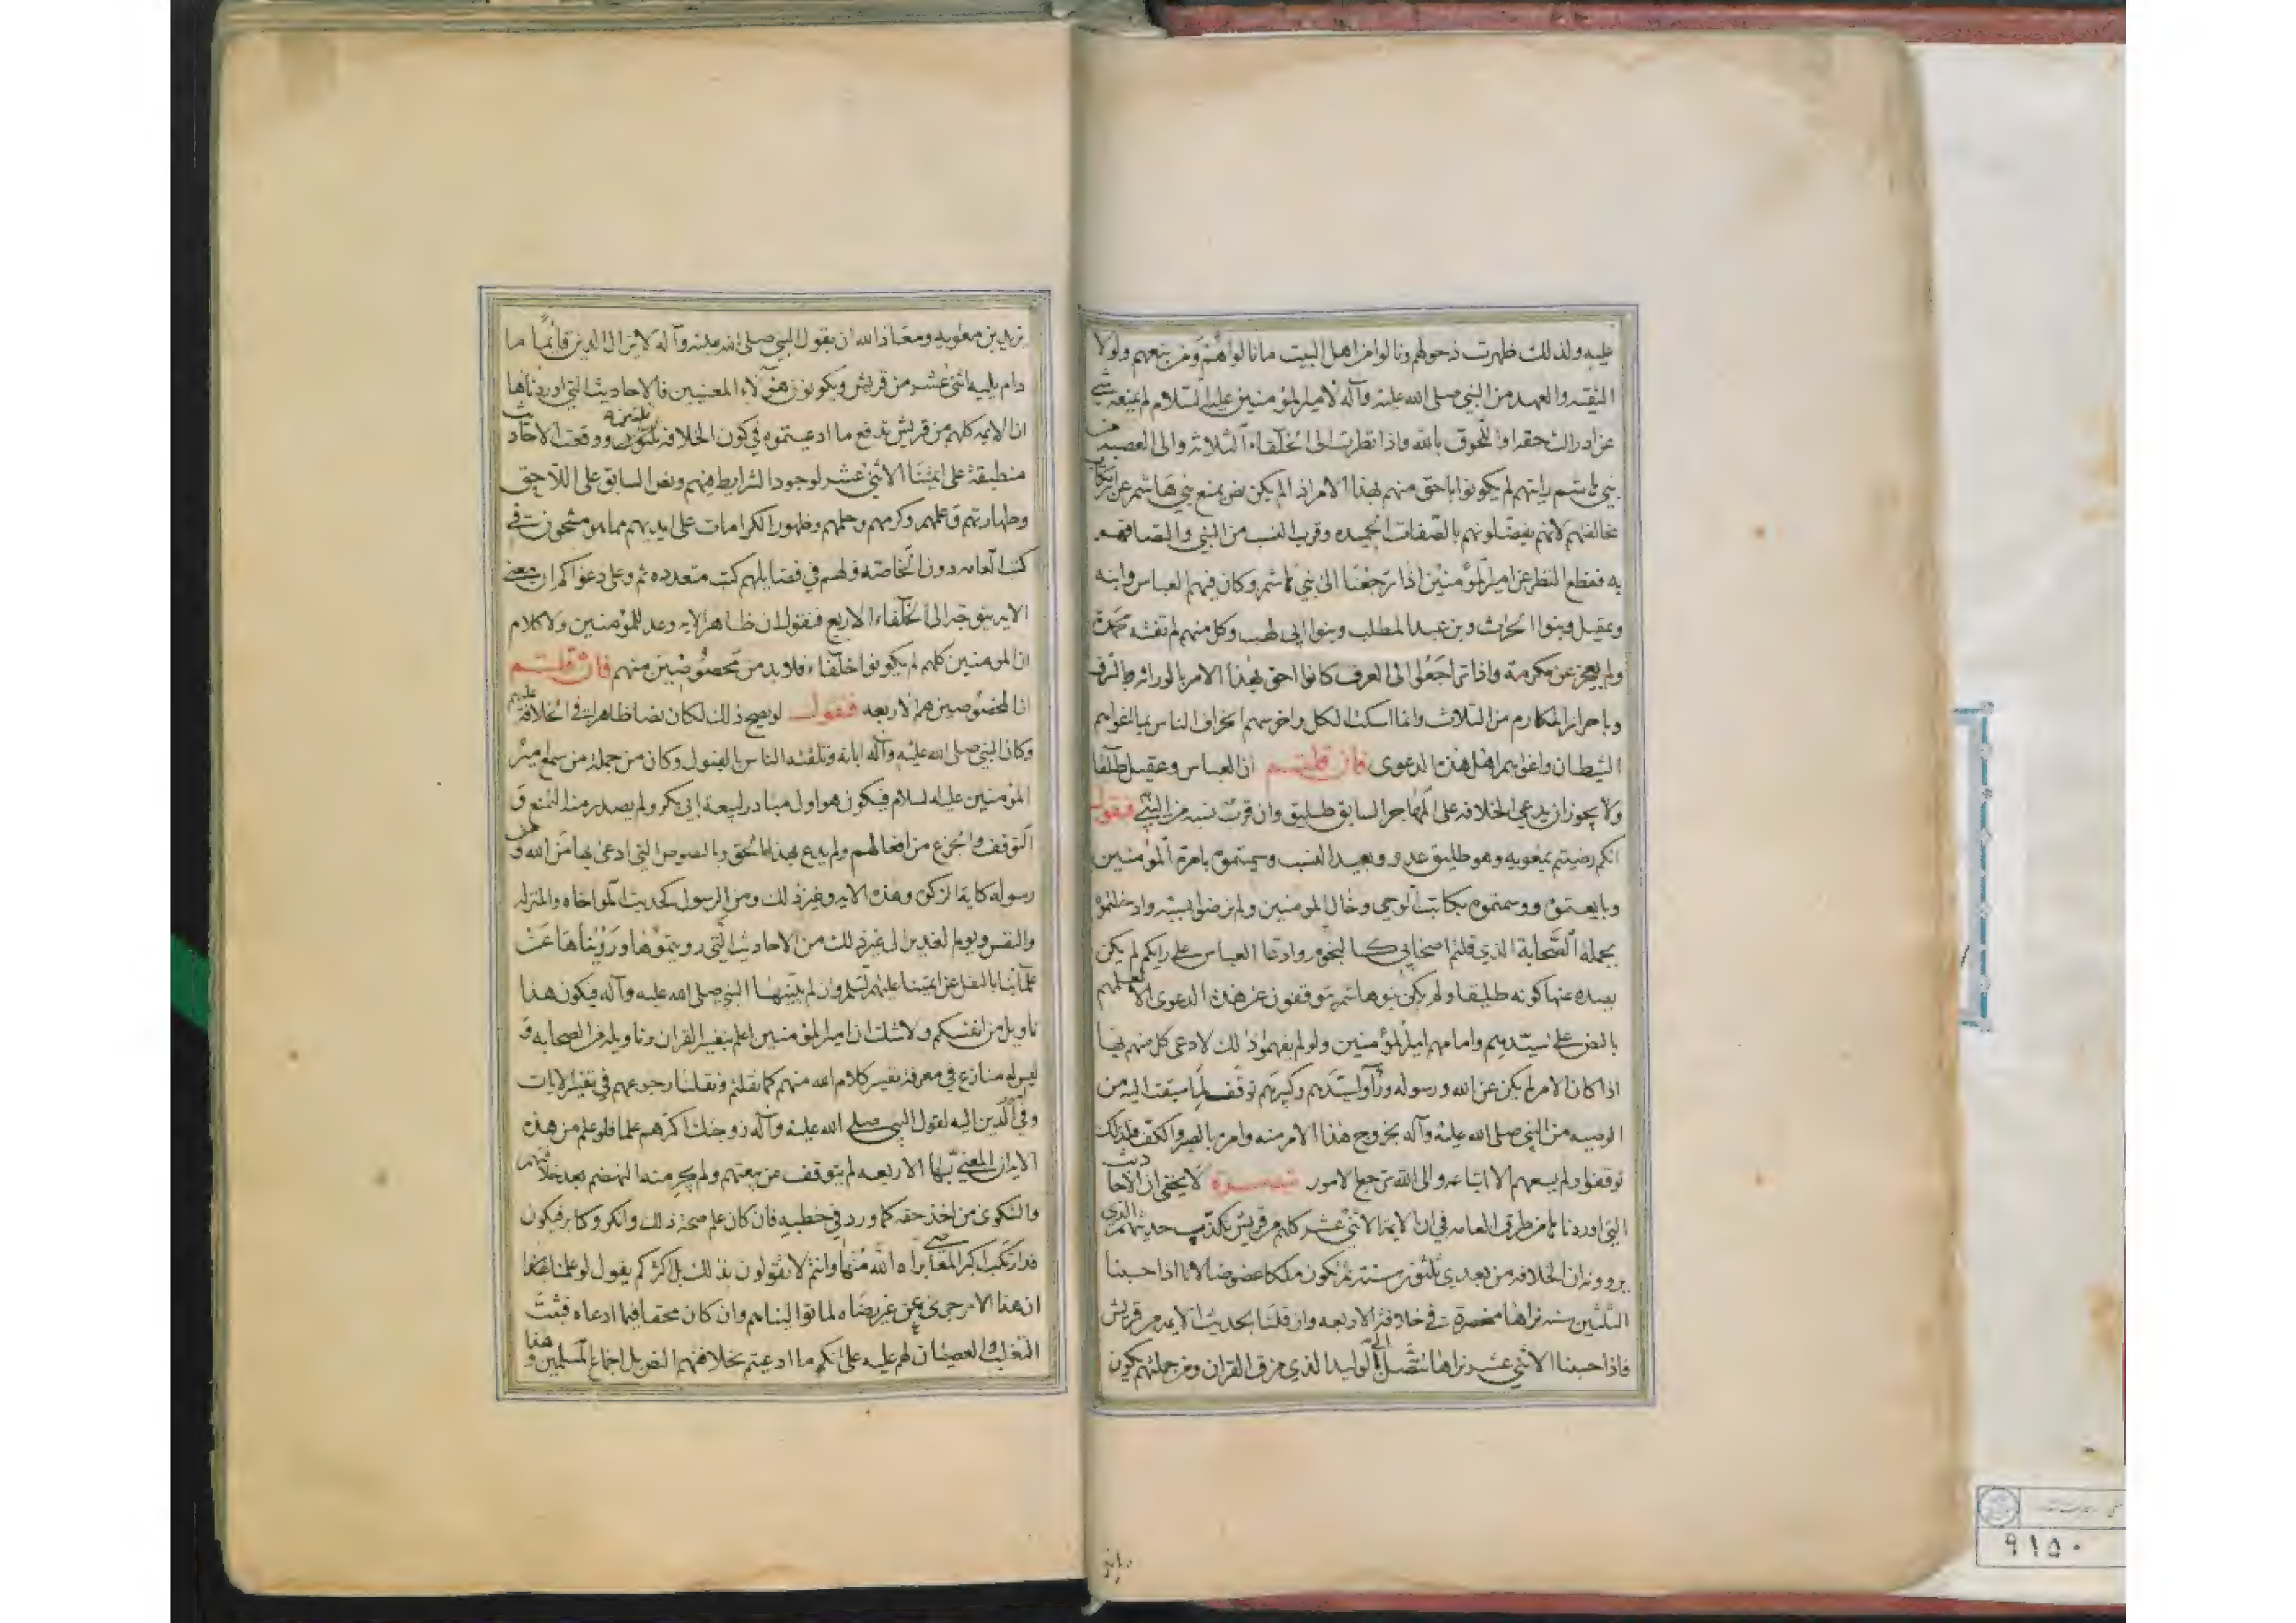 عليه ولذلك ظهرت ذحولهم ونالوا من اهل البيت ما نالوا هم ومن بتعهم ولولا
الثقه والعهد من النبي صلى الله عليه وآله لامير المؤمنين عليه السلام لم يمنعه شي
عن ادراك حقه او اللحوق بالله واذا نظرت الى الخلفاء الثلاثه والى العصبه من
بني هاشم رايتهم لم يكونوا باحق منهم بهذا الامر اذ لم يكن نص يمنع بني هاشم عن ارتكاب
مخالفتهم لانهم يفضلونهم بالصفات الحميده وقرب النسب من النبي والتصاقهم
به فقطع النظر عن امير المؤمنين اذا ترجعنا الى بني هاشم وكان فيهم العباس وابنه
وعقيل وبنوا الحراث وبن عبد المطلب وبنوا ابي لهب وكل منهم لم تفته محمدة
ولم يعجز عن مكرمة واذا تراجعوا الى العرف كانوا احق بهذا الامر بالوراثه والشرف
وباحراز المكارم من الثلاث وانما اسكت الكل واخرسهم انحراف الناس باغوائهم
الشيطان واغوائهم اهل هذه الدعوى فان قلتم ان العباس وعقيل طلقا
ولا يجوز ان يدعي الخلافه على المهاجر السابق طليق وان قرب نسبه من النبي فنقول
انكم رضيتم بمعويه وهو طليق عدو وبعيد النسب وسميتموه بامرة المؤمنين
وبايعتموه ووسمتموه بكاتب الوحي وخال المومنين ولم ترضوا بسبه وادخلتموه
بجملة الصحابة الذي قلتم اصحابي كالنجوم وادعا العباس على رايكم لم يكن
يصده عنها كونه طليقا ولم يكن بنو هاشم يتوقفون عن هذه الدعوى الا لعلمهم
بالنص على سيدهم وامامهم امير المؤمنين ولو لم يفهموا ذلك لادعى كل منهم بها
اذا كان الامر لم يكن عن الله ورسوله ورأوا سيدهم وكبيرهم توقف لما سبقت اليه من
الوصيه من النبي صلى الله عليه وآله بخروج هذا الامر منه وامره بالصبر والكف فلذلك
توقفوا ولم يسعهم الا اتباعه والى الله ترجع الامور تبصرة لا يخفى ان الاحاديث
التي اوردناها من طرق العامه في ان الايمة الاثني عشر كلهم من قريش يكذب حديثهم الذي
يروونه ان الخلافه من بعدي ثلثون سنة ثم تكون ملكا عضوضا لانا اذا حسبنا
الثلثين سنه نراها منحصرة في خلافة الاربعه وان قلنا بحديث الايمه من قريش
فاذا حسبنا الاثني عشر نراها تتصل الى الوليد الذي مزق القران ومن جملتهم يكون
يزيد بن معويه ومعاذ الله ان يقول النبي صلى الله عليه وآله لا يزال الدين قائماً ما
دام يليه اثنى عشر من قريش ويكونون هؤلاء المعنيين فالاحاديث التي اوردناها
ان الايمه كلهم من قريش تدفع ما ادعيتموه في كون الخلافه ثلثون سنه ووقعت الاحاديث
منطبقة على ايمتنا الاثنى عشر لوجود الشرايط فيهم ونص السابق على اللاحق
وطهارتهم وعلمهم وكرمهم وحلمهم وظهور الكرامات على ايديهم مما هو مشحون في
كتب العامه دون الخاصه ولهم في فضايلهم كتب متعدده ثم وعلى دعواكم ان معنى
الايه يتوجه الى الخلفاء الاربع فنقول ان ظاهر الايه وعد للمؤمنين ولا كلام
ان المومنين كلهم لم يكونوا خلفاء فلا بد من مخصوصين منهم فان قلتم
ان المخصوصين هم الاربعه فنقول لو يصح ذلك لكان نصا ظاهرا في الخلافة عليهم
وكان النبي صلى الله عليه وآله ابانه وتلقته الناس بالقبول وكان من جملة من سمع امير
المؤمنين عليه السلام فيكون هو اول مبادر لبيعة ابي بكر ولم يصدر منه المنع و
التوقف والجزع من افعالهم ولم يدع بهذا الحق وبالنصوص التي ادعى بها من الله ومن
رسوله كاية الزكوة وهذه الايه وغير ذلك ومن الرسول كحديث المواخاه والمنزله
والنفس ويوم الغدير الى غير ذلك من الاحاديث التي رويتموها ورويناها عن
علمائنا بالنقل عن ايمتنا عليهم السلم وان لم يبينها النبي صلى الله عليه وآله فيكون هذا
تاويل من انفسكم ولا شك ان امير المؤمنين اعلم بتفسير القران وتاويله من الصحابه و
ليس له منازع في معرفة تفسير كلام الله منهم كما نقلتم ونقلنا رجوعهم في تفسير الايات
وفي امور الدين اليه لقول النبي صلى الله عليه وآله زوجتك اكثرهم علما فلو علم من هذه
الايه ان المعني بها الاربعه لم يتوقف من بيعتهم ولم يجر منه التهضم بعد خلافتهم
والشكوى من اخذ حقه كما ورد في خطبه فان كان علم صحة ذلك وانكر وكابر فيكون
قد ارتكب اكبر المعاصي براه الله منها وانتم لا تقولون بذلك بل اكثركم يقول لو علمنا
ان هذا الامر جرى عن غير رضاه لما توالينا هم وان كان محقا فيما ادعاه فثبت
التغلب والعصيان لهم عليه على انكم ما ادعيتم بخلافتهم النص بل اجماع المسلمين وهذا
٩١٥٠